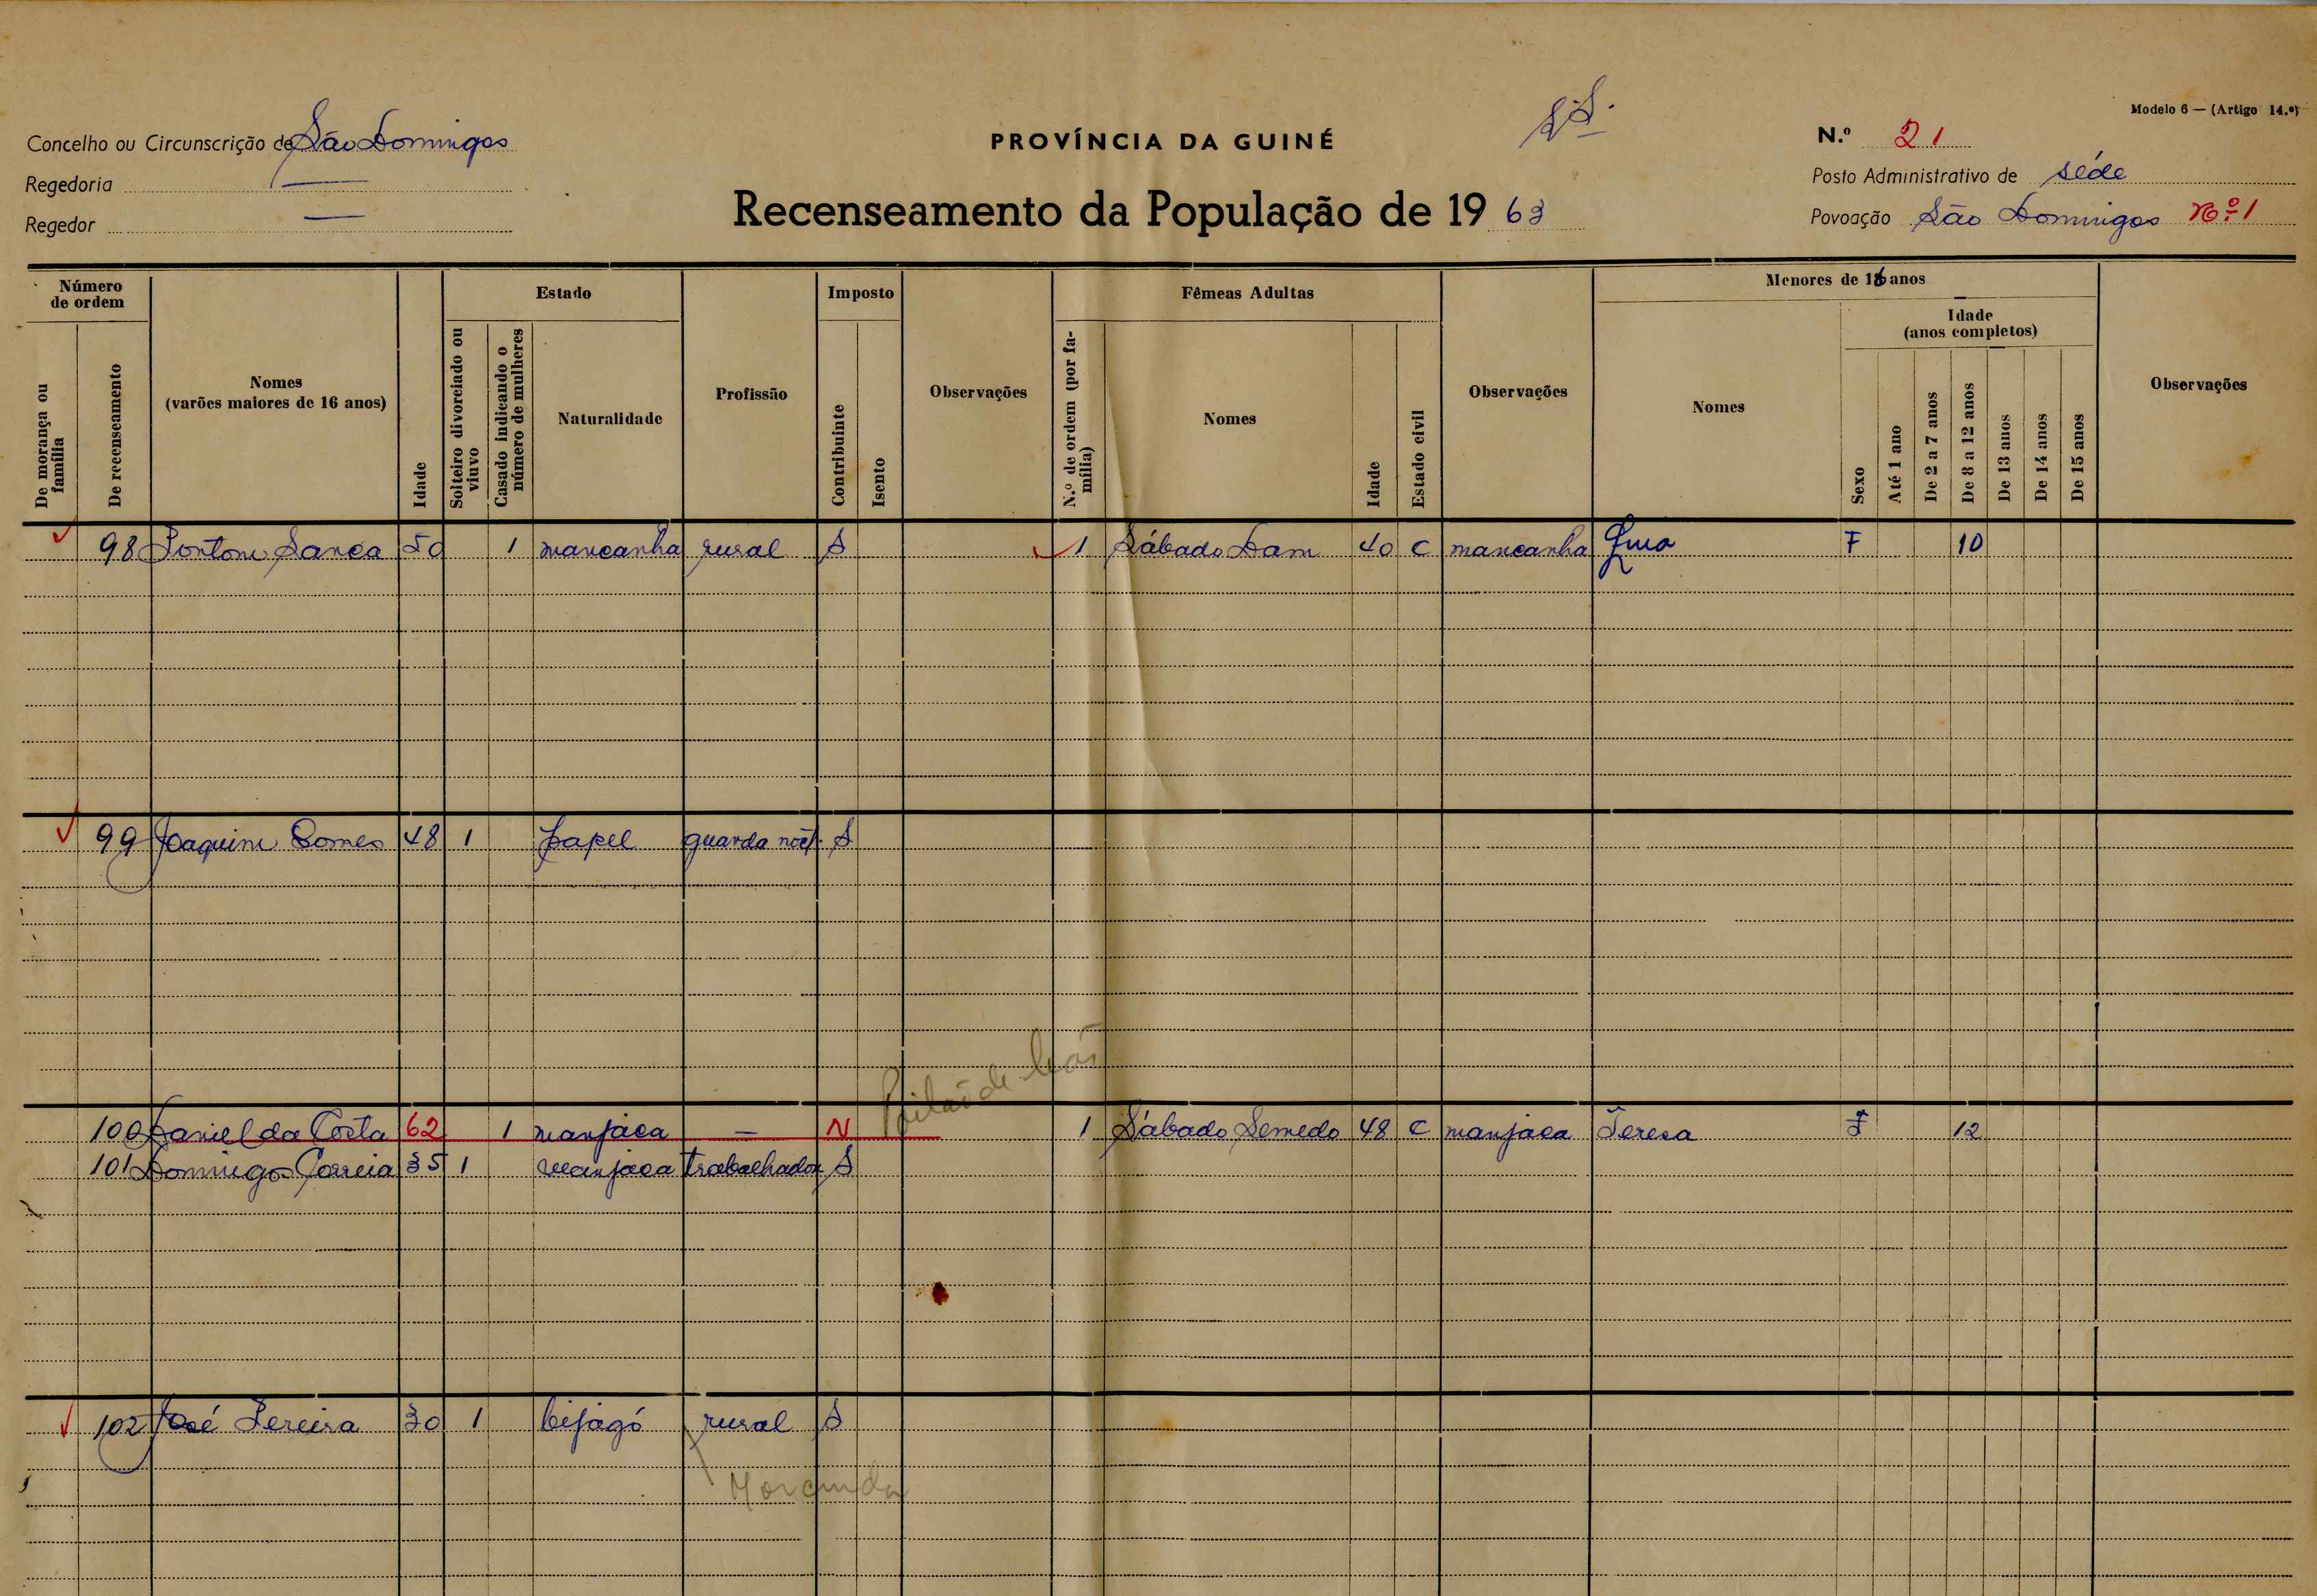 Modelo 6 — (Artigo 14.º)
Concelho ou Circunscrição de São Domingos
PROVÍNCIA DA GUINÉ
N.º 21
Regedoria —
Posto Administrativo de séde
Regedor —
Recenseamento da População de 1963
Povoação São Domingos Nº 1
Número de ordem
De morança ou família
De recenseamento
Nomes
(varões maiores de 16 anos)
Idade
Estado
Solteiro divorciado ou viuvo
Casado indicando o número de mulheres
Naturalidade
Profissão
Imposto
Contribuinte
Isento
Observações
Fêmeas Adultas
N.º de ordem (por família)
Nomes
Idade
Estado civil
Observações
Menores de 16 anos
Nomes
Sexo
Idade
(anos completos)
Até 1 ano
De 2 a 7 anos
De 8 a 12 anos
De 13 anos
De 14 anos
De 15 anos
Observações
98 Sanca 50 1 mancanha rural S 1 Sábado Dam 40 C mancanha F 10
99 Joaquim Gomes 48 1 papel guarda S
100 Daniel da Costa 62 1 manjaca — N 1 Sábado Semedo 48 C manjaca Teresa F 12
101 Domingos Correia 35 1 manjaca trabalhador S
102 José Pereira 30 1 bijagó rural S